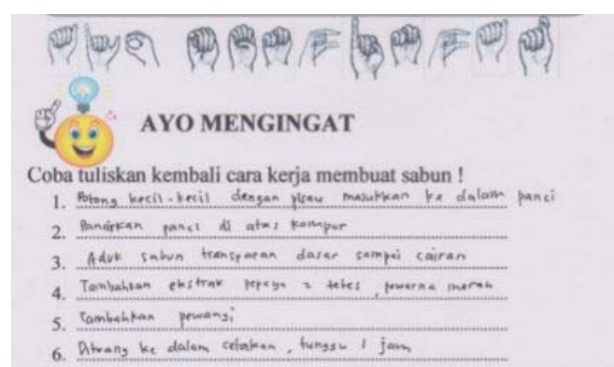 AYO MENGINGAT
Coba tuliskan kembali cara kerja membuat sabun !
1. Potong kecil-kecil dengan pisau masukkan ke dalam panci
2. Panaskan panci di atas kompor
3. Aduk sabun transparan dasar sampai cairan
4. Tambahkan ekstrak pepaya 2 tetes, pewarna merah
5. Tambahkan pewangi
6. Dituang ke dalam cetakan, tunggu 1 jam